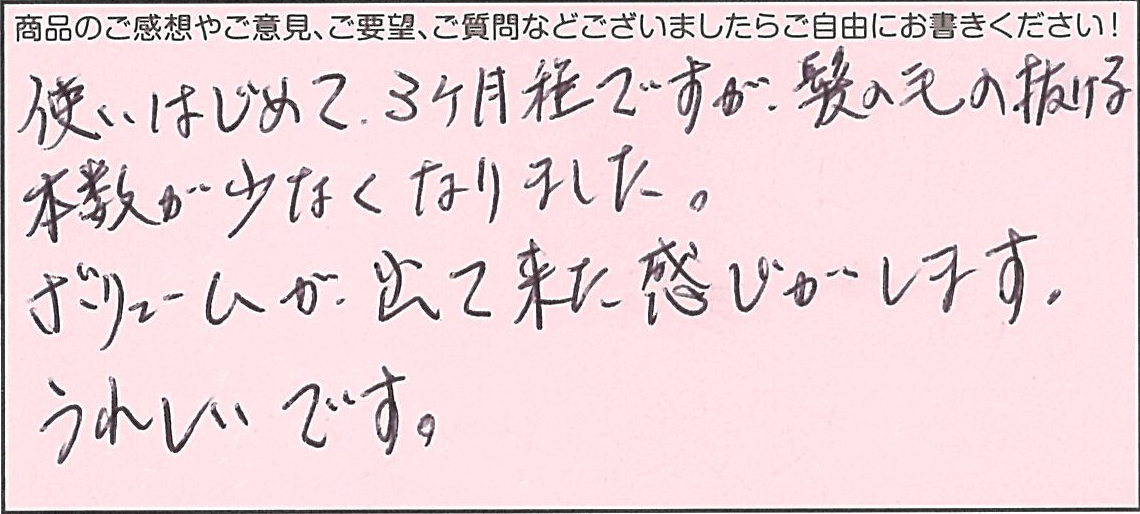 商品のご感想やご意見、ご要望、ご質問などございましたらご自由にお書きください!
使いはじめて、3ケ月程ですが、髪の毛の抜ける
本数が少なくなりました。
ボリュームが、出て来た感じがします。
うれしいです。